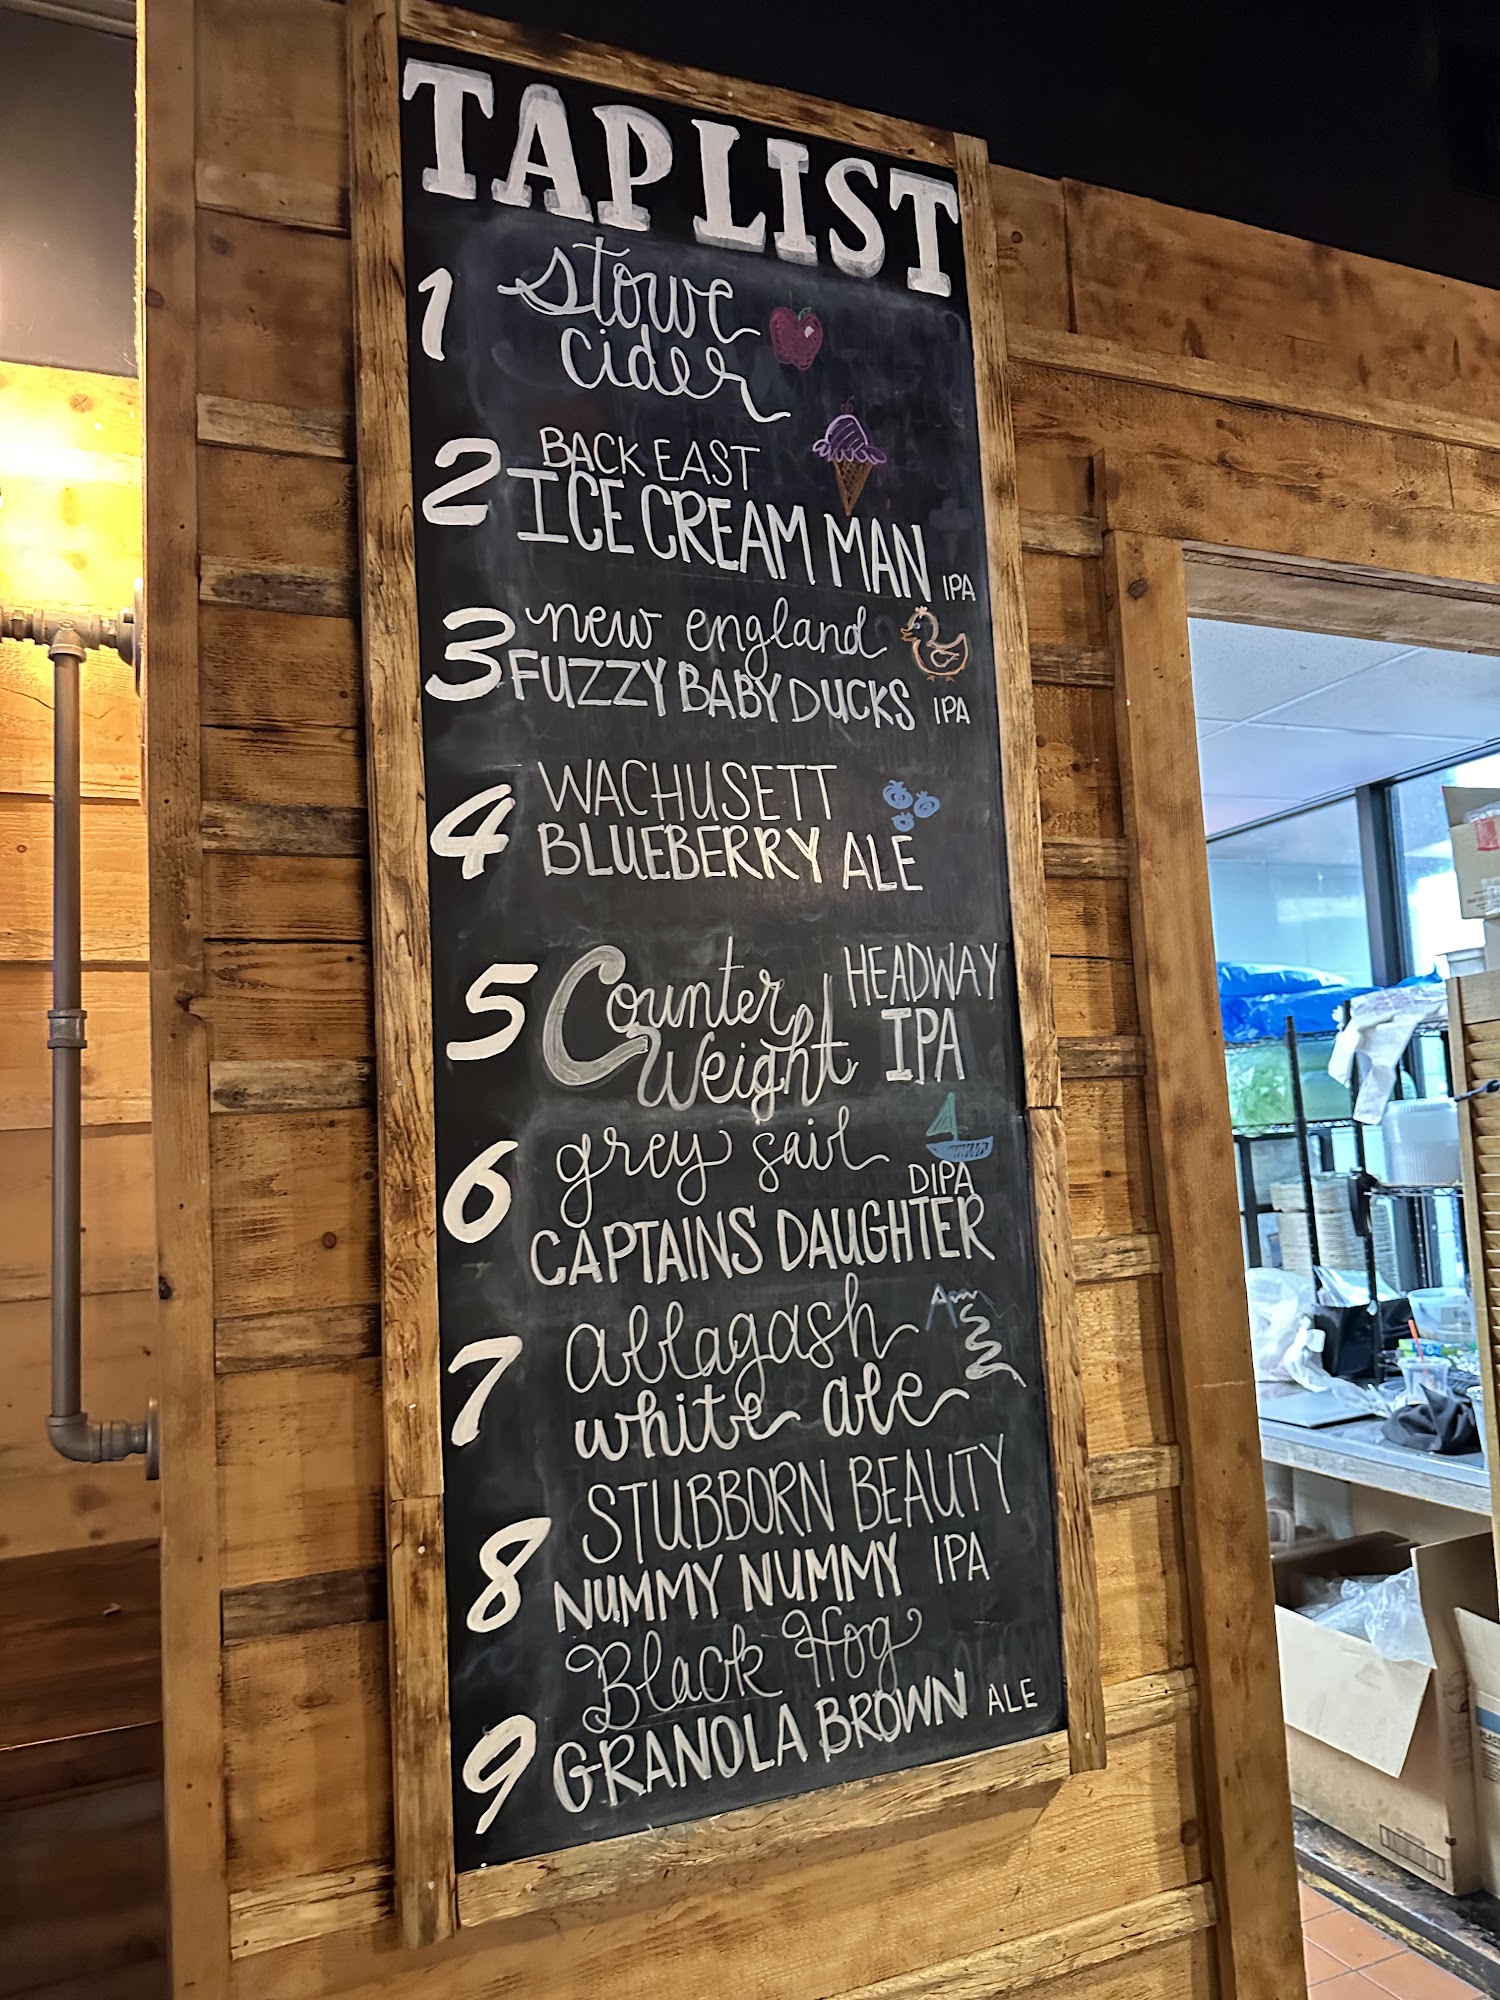 TAP LIST
1 stowe
cider
2 BACK EAST
ICE CREAM MAN IPA
3 new england
FUZZY BABY DUCKS IPA
4 WACHUSETT
BLUEBERRY ALE
5 Counter HEADWAY
Weight IPA
6 grey sail
DIPA
CAPTAINS DAUGHTER
7 allagash
white ale
8 STUBBORN BEAUTY
NUMMY NUMMY IPA
9 Black Hog
GRANOLA BROWN ALE